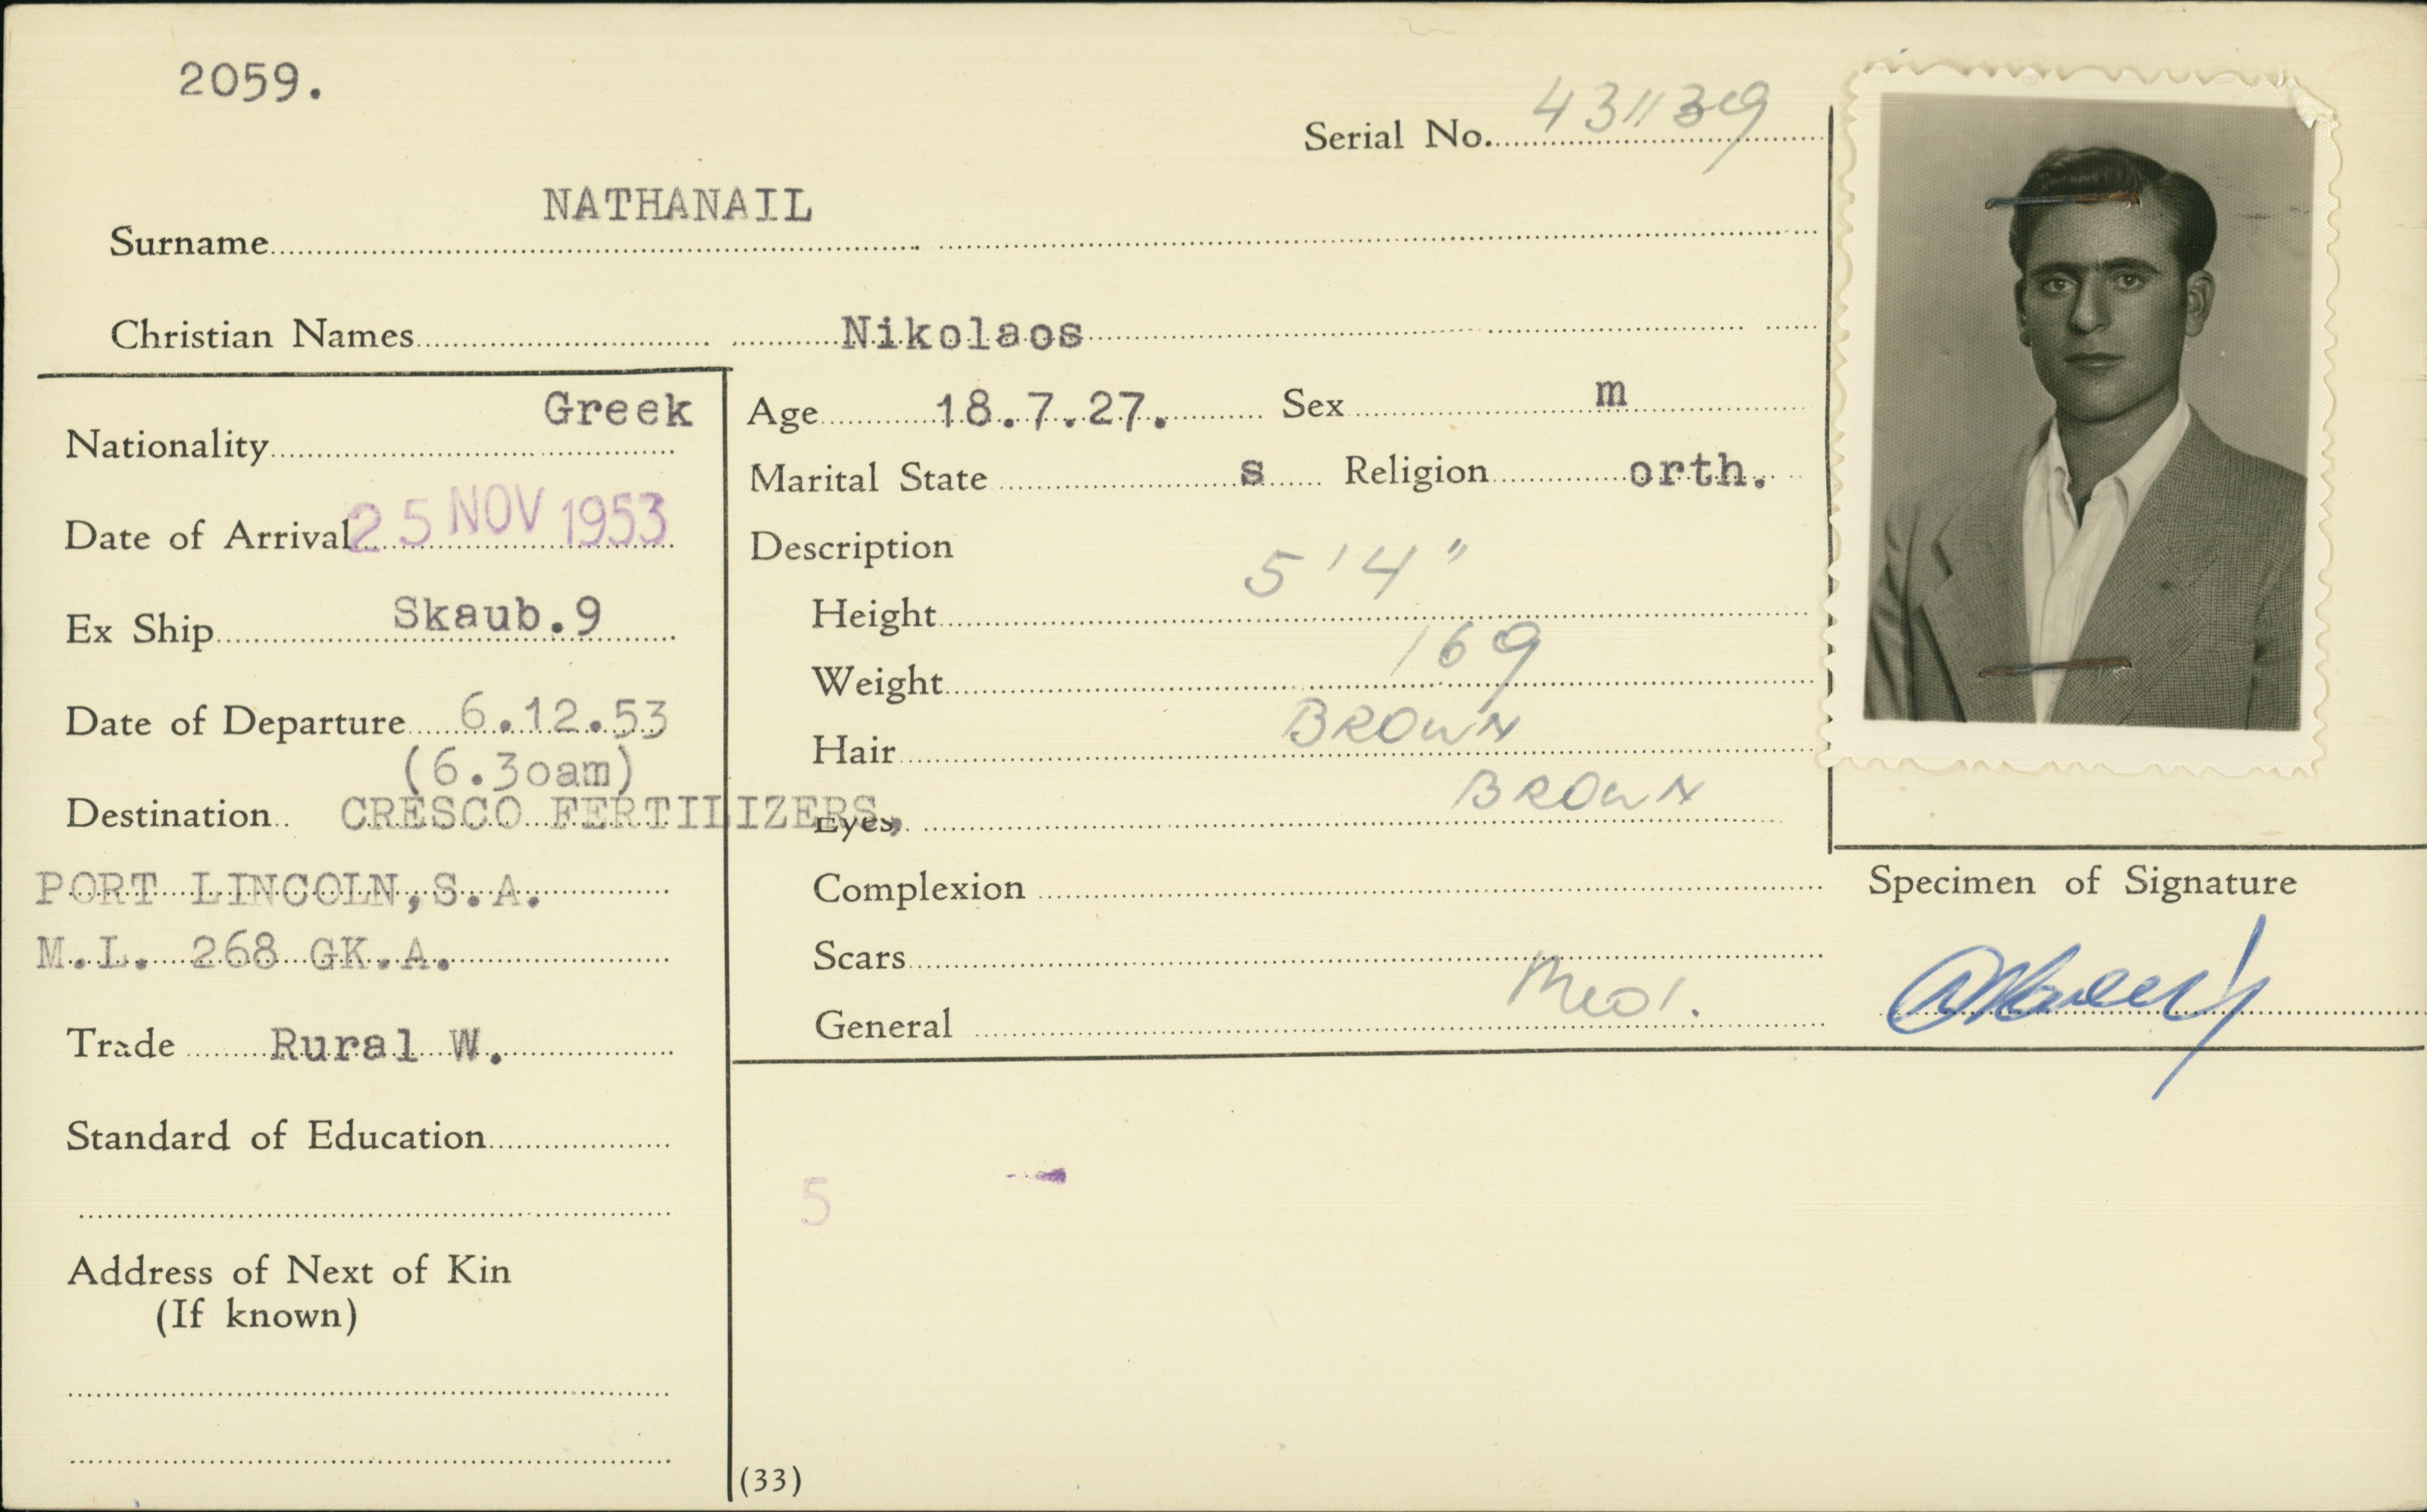 2059.
Serial No. 431139
Surname NATHANAIL
Christian Names Nikolaos
Nationality Greek
Date of Arrival 25 NOV 1953
Ex Ship Skaub.9
Date of Departure 6.12.53
(6.30am)
Destination CRESCO FERTILIZERS,
PORT LINCOLN, S.A.
M.L. 268 GK.A.
Trade Rural W.
Standard of Education
Address of Next of Kin
(If known)
Age 18.7.27. Sex m
Marital State s Religion orth.
Description
Height 5'4"
Weight 169
Hair BROWN
Eyes BROWN
Complexion
Scars
General Med.
5
(33)
Specimen of Signature